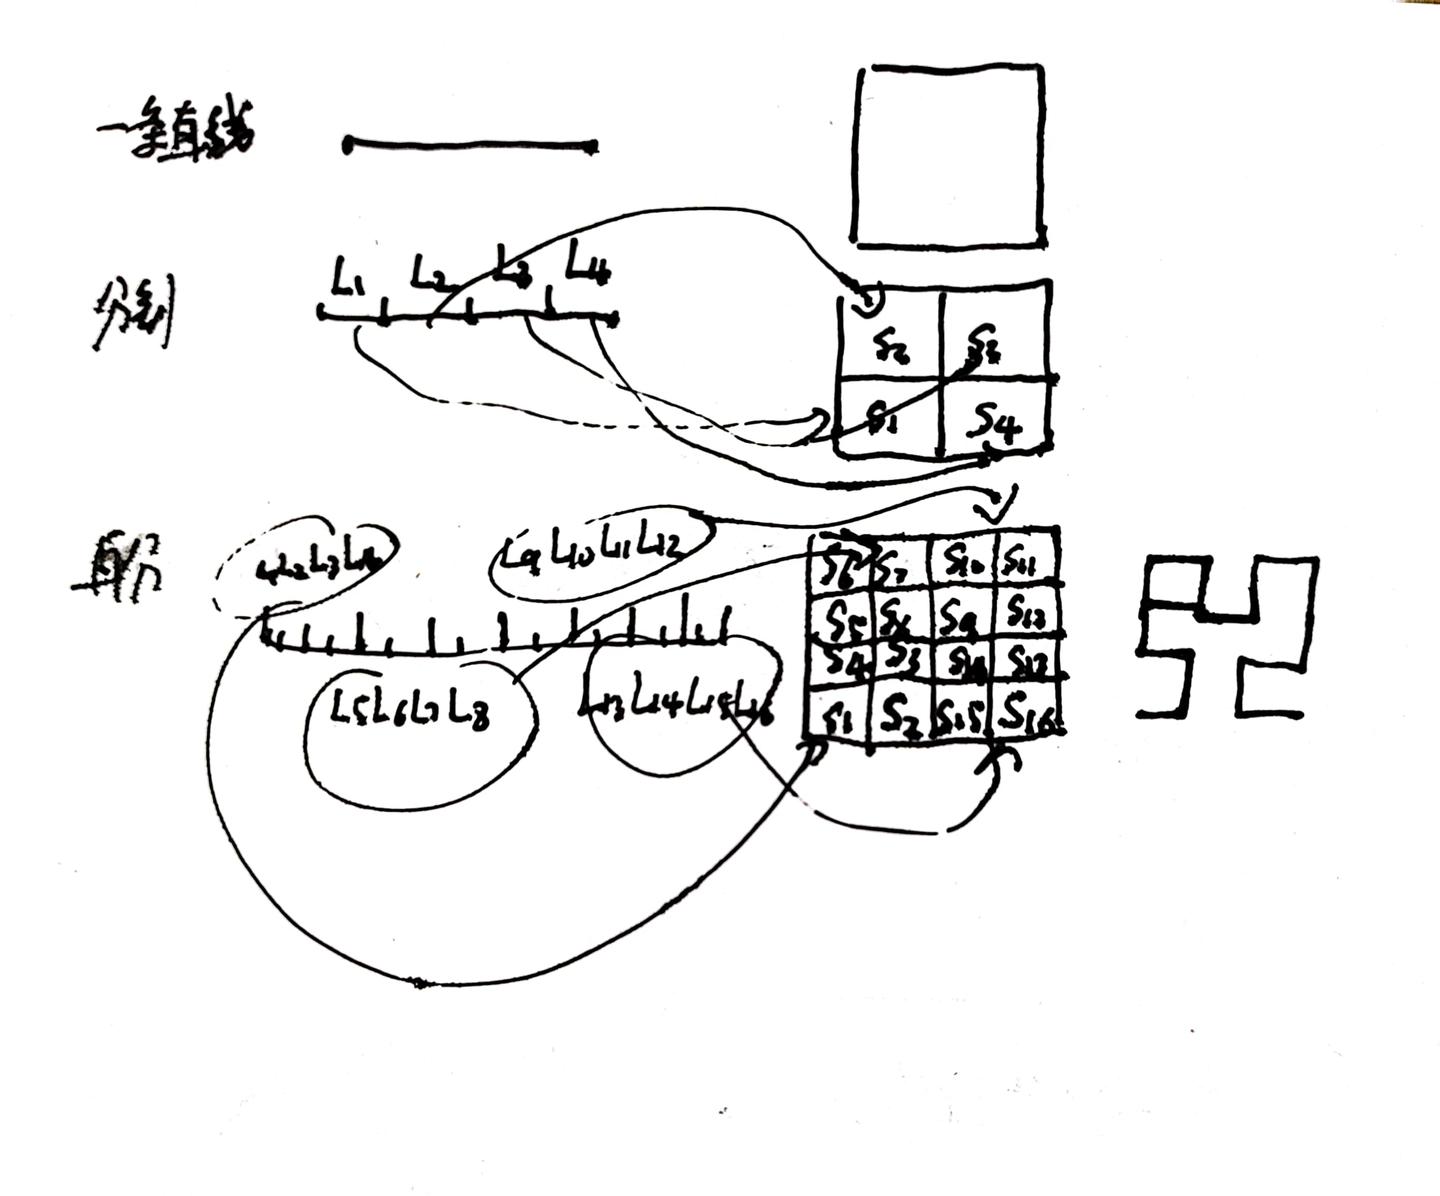 一条直线
分割
L1 L2 L3 L4
S2 S3
S1 S4
再分
L1L2L3L4
L9 L10 L11 L12
S6 S7 S10 S11
S5 S8 S9 S12
S4 S3 S14 S13
S1 S2 S15 S16
L5L6L7L8
L13L14L15L16